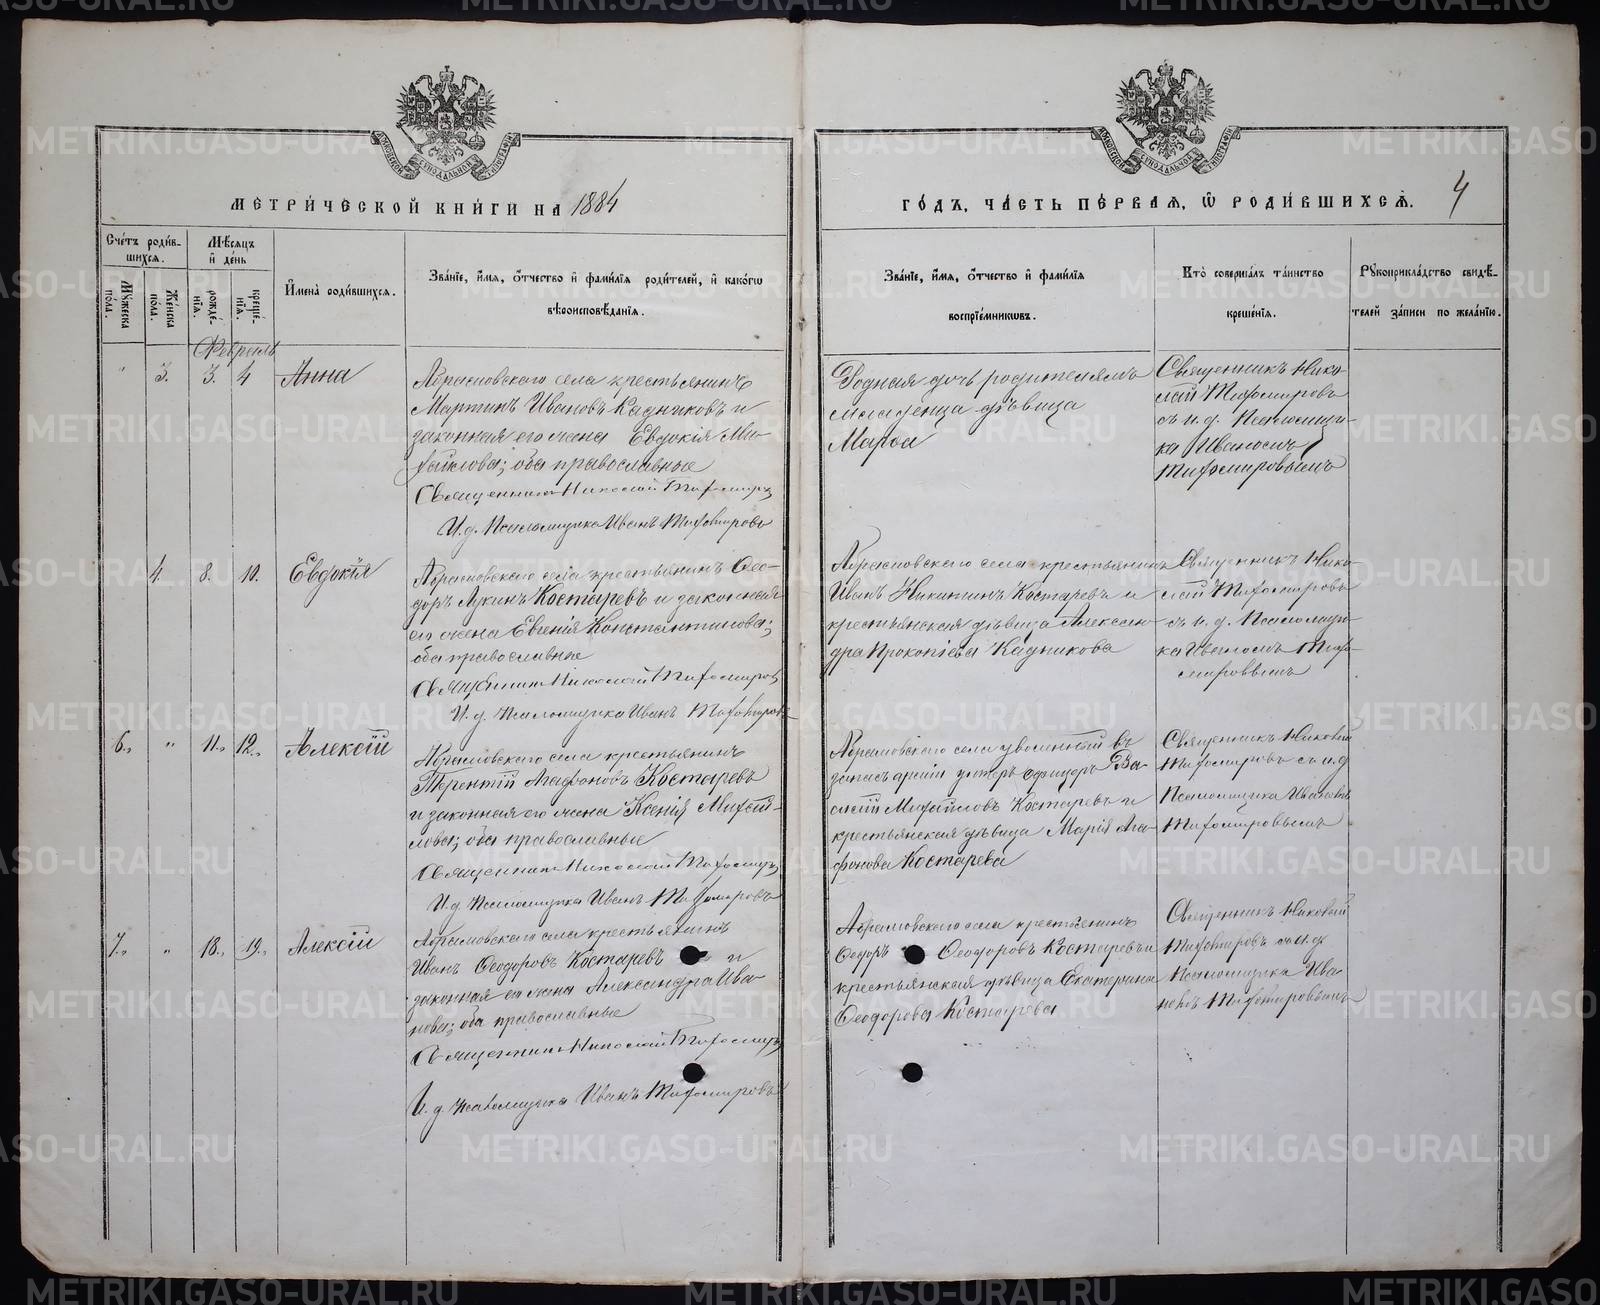 МЕТРИ́ЧЕСКОЙ КНИ́ГИ НА 1884
ГО́ДЪ, ЧА́СТЬ ПЕ́РВАЯ, Ѡ РОДИ́ВШИХСѦ. 4
Сче́тъ роди́в-
шихся.
Мѣ́сяцъ
и де́нь
Мꙋ́жеска
по́ла.
Же́нска
по́ла.
рожде́-
нїѧ.
креще́-
нїѧ.
И҆мена̀ роди́вшихся.
Зва́нїе, и҆́мя, ѻ҆́тчество и҆ фами́лїѧ роди́телей, и҆ како́гѡ
вѣроисповѣ́данїѧ.
Зва́нїе, и҆́мя, ѻ҆́тчество и҆ фами́лїѧ
воспрїе́мникѡвъ.
Кто̀ соверша́лъ та́инство
креще́нїѧ.
Рꙋкоприкла́дство свидѣ́-
телей за́писи по жела́нїю.
Февраль
" 3. 3. 4 Анна
Абрамовскаго села крестьянинъ
Мартинъ Ивановъ Кадниковъ и
законная его жена Евдокія Ми-
хаилова; оба православные
Священникъ Николай Тихомировъ
И. д. Псаломщика Иванъ Тихомировъ
Родная дочь родителямъ
младенца дѣвица
Марѳа
Священникъ Нико-
лай Тихомировъ
съ и. д. Псаломщи-
ка Иваномъ
Тихомировымъ
4. 8. 10. Евдокія
Абрамовскаго села крестьянинъ Ѳео-
доръ Лукинъ Костаревъ и законная
его жена Евгенія Константинова;
оба православные
Священникъ Николай Тихомировъ
И. д. Псаломщика Иванъ Тихомировъ
Абрамовскаго села крестьянинъ
Иванъ Никитинъ Костаревъ и
крестьянская дѣвица Алексан-
дра Прокопіева Кадникова
Священникъ Нико-
лай Тихомировъ
съ и. д. Псаломщи-
ка Иваномъ Тихо-
мировымъ
6., " 11., 12., Алексій
Абрамовскаго села крестьянинъ
Терентій Агафоновъ Костаревъ
и законная его жена Ксенія Михай-
лова; оба православные
Священникъ Николай Тихомировъ
И. д. Псаломщика Иванъ Тихомировъ
Абрамовскаго села уволенный въ
запасъ арміи унтеръ офицеръ Ва-
силій Михайловъ Костаревъ и
крестьянская дѣвица Марія Ага-
фонова Костарева
Священникъ Николай
Тихомировъ съ и. д
Псаломщика Иваномъ
Тихомировымъ
7., " 18., 19., Алексій
Абрамовскаго села крестьянинъ
Иванъ Ѳеодоровъ Костаревъ и
законная его жена Александра Ива-
нова; оба православные
Священникъ Николай Тихомировъ
И. д. Псаломщика Иванъ Тихомировъ
Абрамовскаго села крестьянинъ
Ѳедоръ Ѳеодоровъ Костаревъ и
крестьянская дѣвица Екатерина
Ѳеодорова Костарева
Священникъ Николай
Тихомировъ съ и. д.
Псаломщика Ива-
номъ Тихомировымъ
METRIKI.GASO-URAL.RU